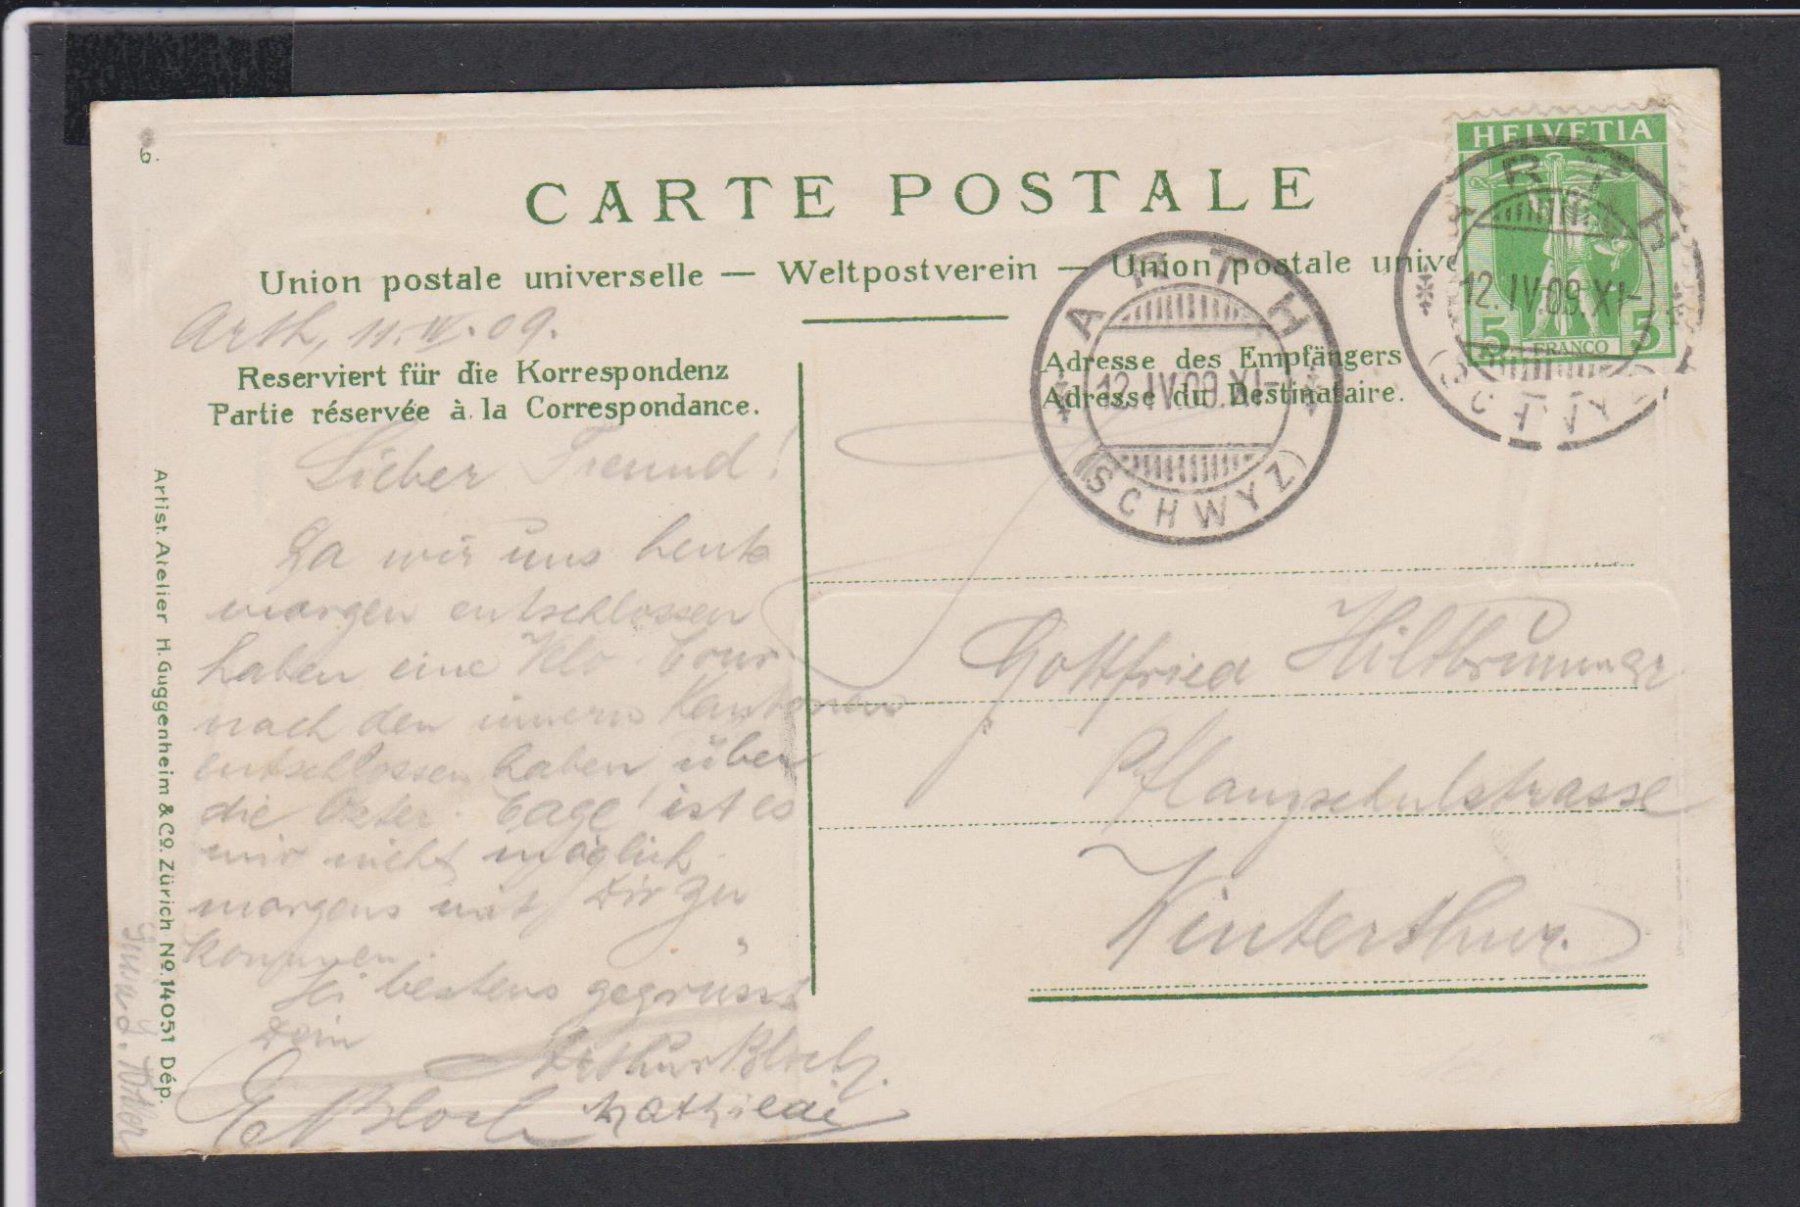 6.
CARTE POSTALE
Union postale universelle — Weltpostverein — Union postale unive
Arth, 11. IV. 09.
Reserviert für die Korrespondenz
Partie réservée à la Correspondance.
Adresse des Empfängers
Adresse du Destinataire.
HELVETIA
5 FRANCO 5
ARTH
12.IV.09.XI-
(SCHWYZ)
ARTH
12.IV.09.XI-
(SCHWYZ)
Lieber Freund!
Da wir uns heute
morgen entschlossen
haben eine Velo-Tour
nach den innern Kantonen
entschlossen haben über
die Oster-Tage ist es
mir nicht möglich
morgens mit Dir zu
kommen.
Sei bestens gegrüsst
Dein
Arthur Bloch.
Bloch Mathilde
Gottfried Hiltbrunner
Pflanzschulstrasse
Winterthur.
Artist. Atelier H. Guggenheim & Co. Zürich No. 14051 Dép.